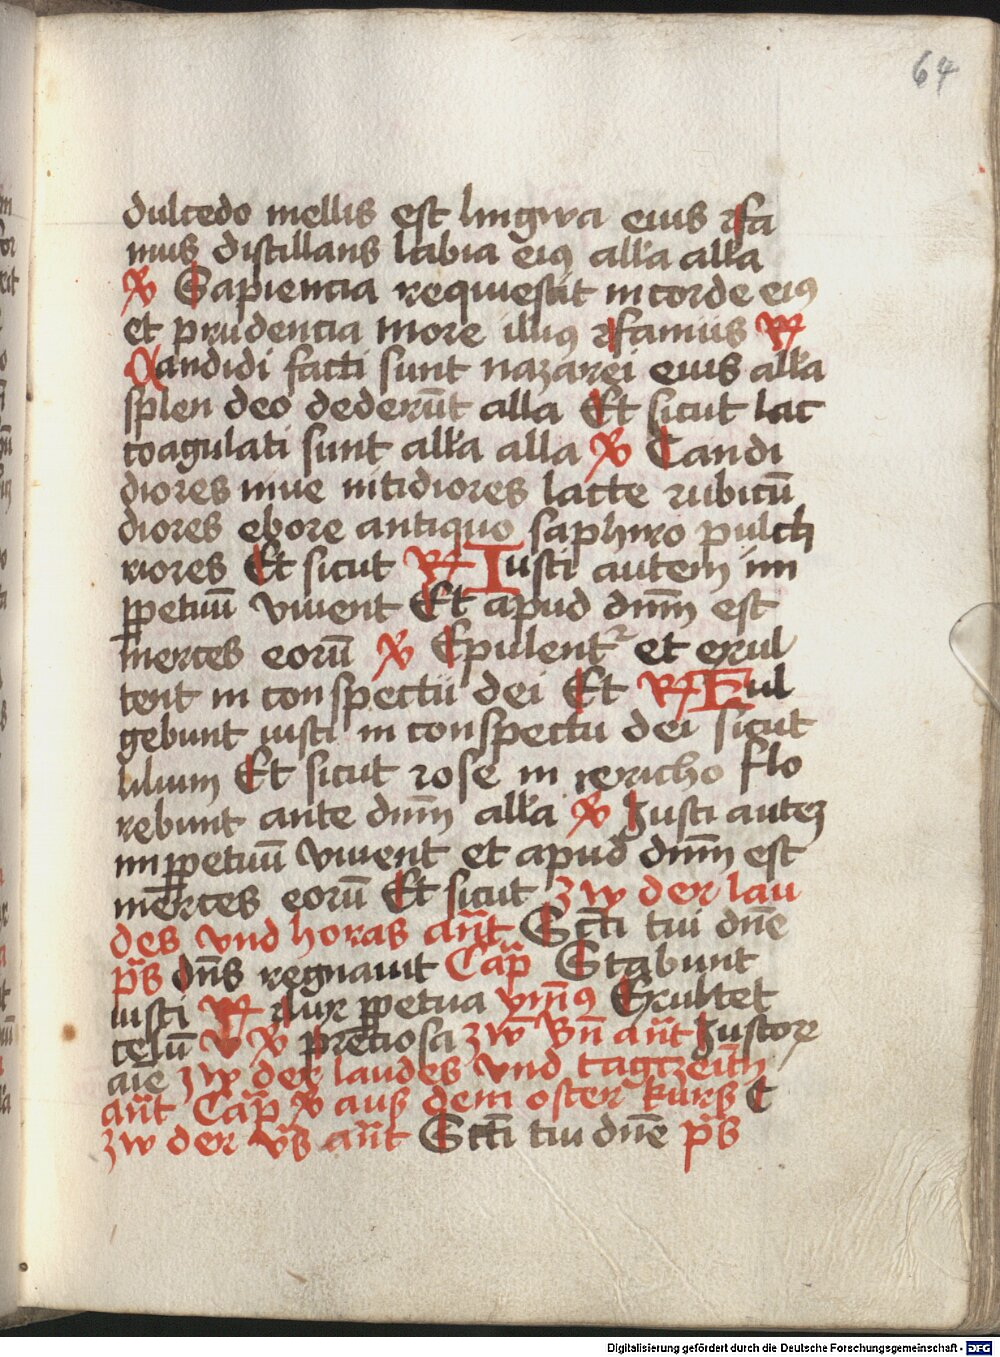 64
dulcedo mellis est lingwa eius ꝛfa
mus distillans labia eiꝰ all'a all'a
℣ Sapiencia requiescit in corde eiꝰ
et prudencia in ore illiꝰ ꝛfamus ℟
Candidi facti sunt nazarei eius all'a
splen deo dederūt alla Et sicut lac
coagulati sunt all'a alla ℣ Candi
diores niue nitidiores lacte rubicū
diores ebore antiquo saphiro pulch
riores Et sicut ℟ Iusti autem im
ꝑpetuū viuent Et apud dnm̄ est
merces eorū ℣ Epulent᷑ et exul
tent in conspectu dei Et ℟ Ful
gebunt iusti in conspectu dei sicut
lilium Et sicut rose in iericho flo
rebunt ante dnm̄ all'a ℣ Justi autez
im ꝑpetuū viuent et apud dnm̄ est
merces eorū Et sicut zw der lau
des vnd horas an̄t Sct̄i tui dn̄e
p̄s dn̄s regnauit Cap̄ Stabunt
iusti ℟ lux ꝑpetua ymn̄ꝰ Exultet
celū ℣ preciosa zw̄ Bn̄ an̄t Justoꝝ
aīe zw der laudes vnd tagzeitn̄
an̄t Cap̄ ℣ aus dem oster kurs C
zw der v̄s an̄t Sct̄i tui dn̄e p̄s
Digitalisierung gefördert durch die Deutsche Forschungsgemeinschaft - DFG